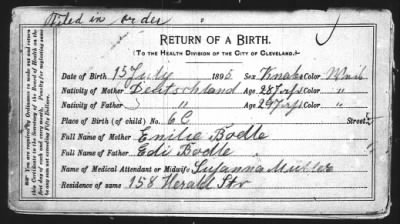 Filed in order
RETURN OF A BIRTH.
(TO THE HEALTH DIVISION OF THE CITY OF CLEVELAND.)
Date of Birth 15 July 1895 Sex Knabe Color Weib
Nativity of Mother Deutschland Age 28 yrs Color "
Nativity of Father " Age 29 yrs Color "
Place of Birth (of child) No. 6 C Street
Full Name of Mother Emilie Bodle
Full Name of Father Edi Bodle
Name of Medical Attendant or Midwife Susanna Müller
Residence of same 158 Herald Str
You are required by Ordinance to make out and return
this Certificate to the Secretary of the Board of Health on the
first day of each and every month. Penalty for neglecting same
to any sum not exceeding Fifty Dollars.